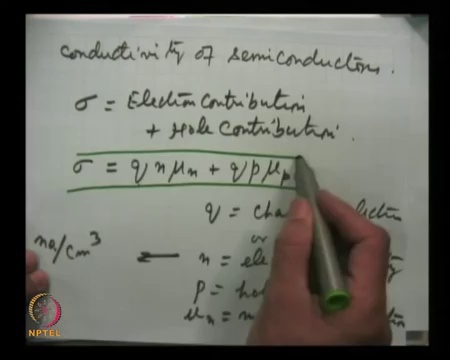 conductivity of semiconductors.
σ = Electron contribution
+ Hole contribution.
σ = q n μn + q p μp
q = cha
or
no/cm³ ← n = ele
p = ho
μn = m
NPTEL